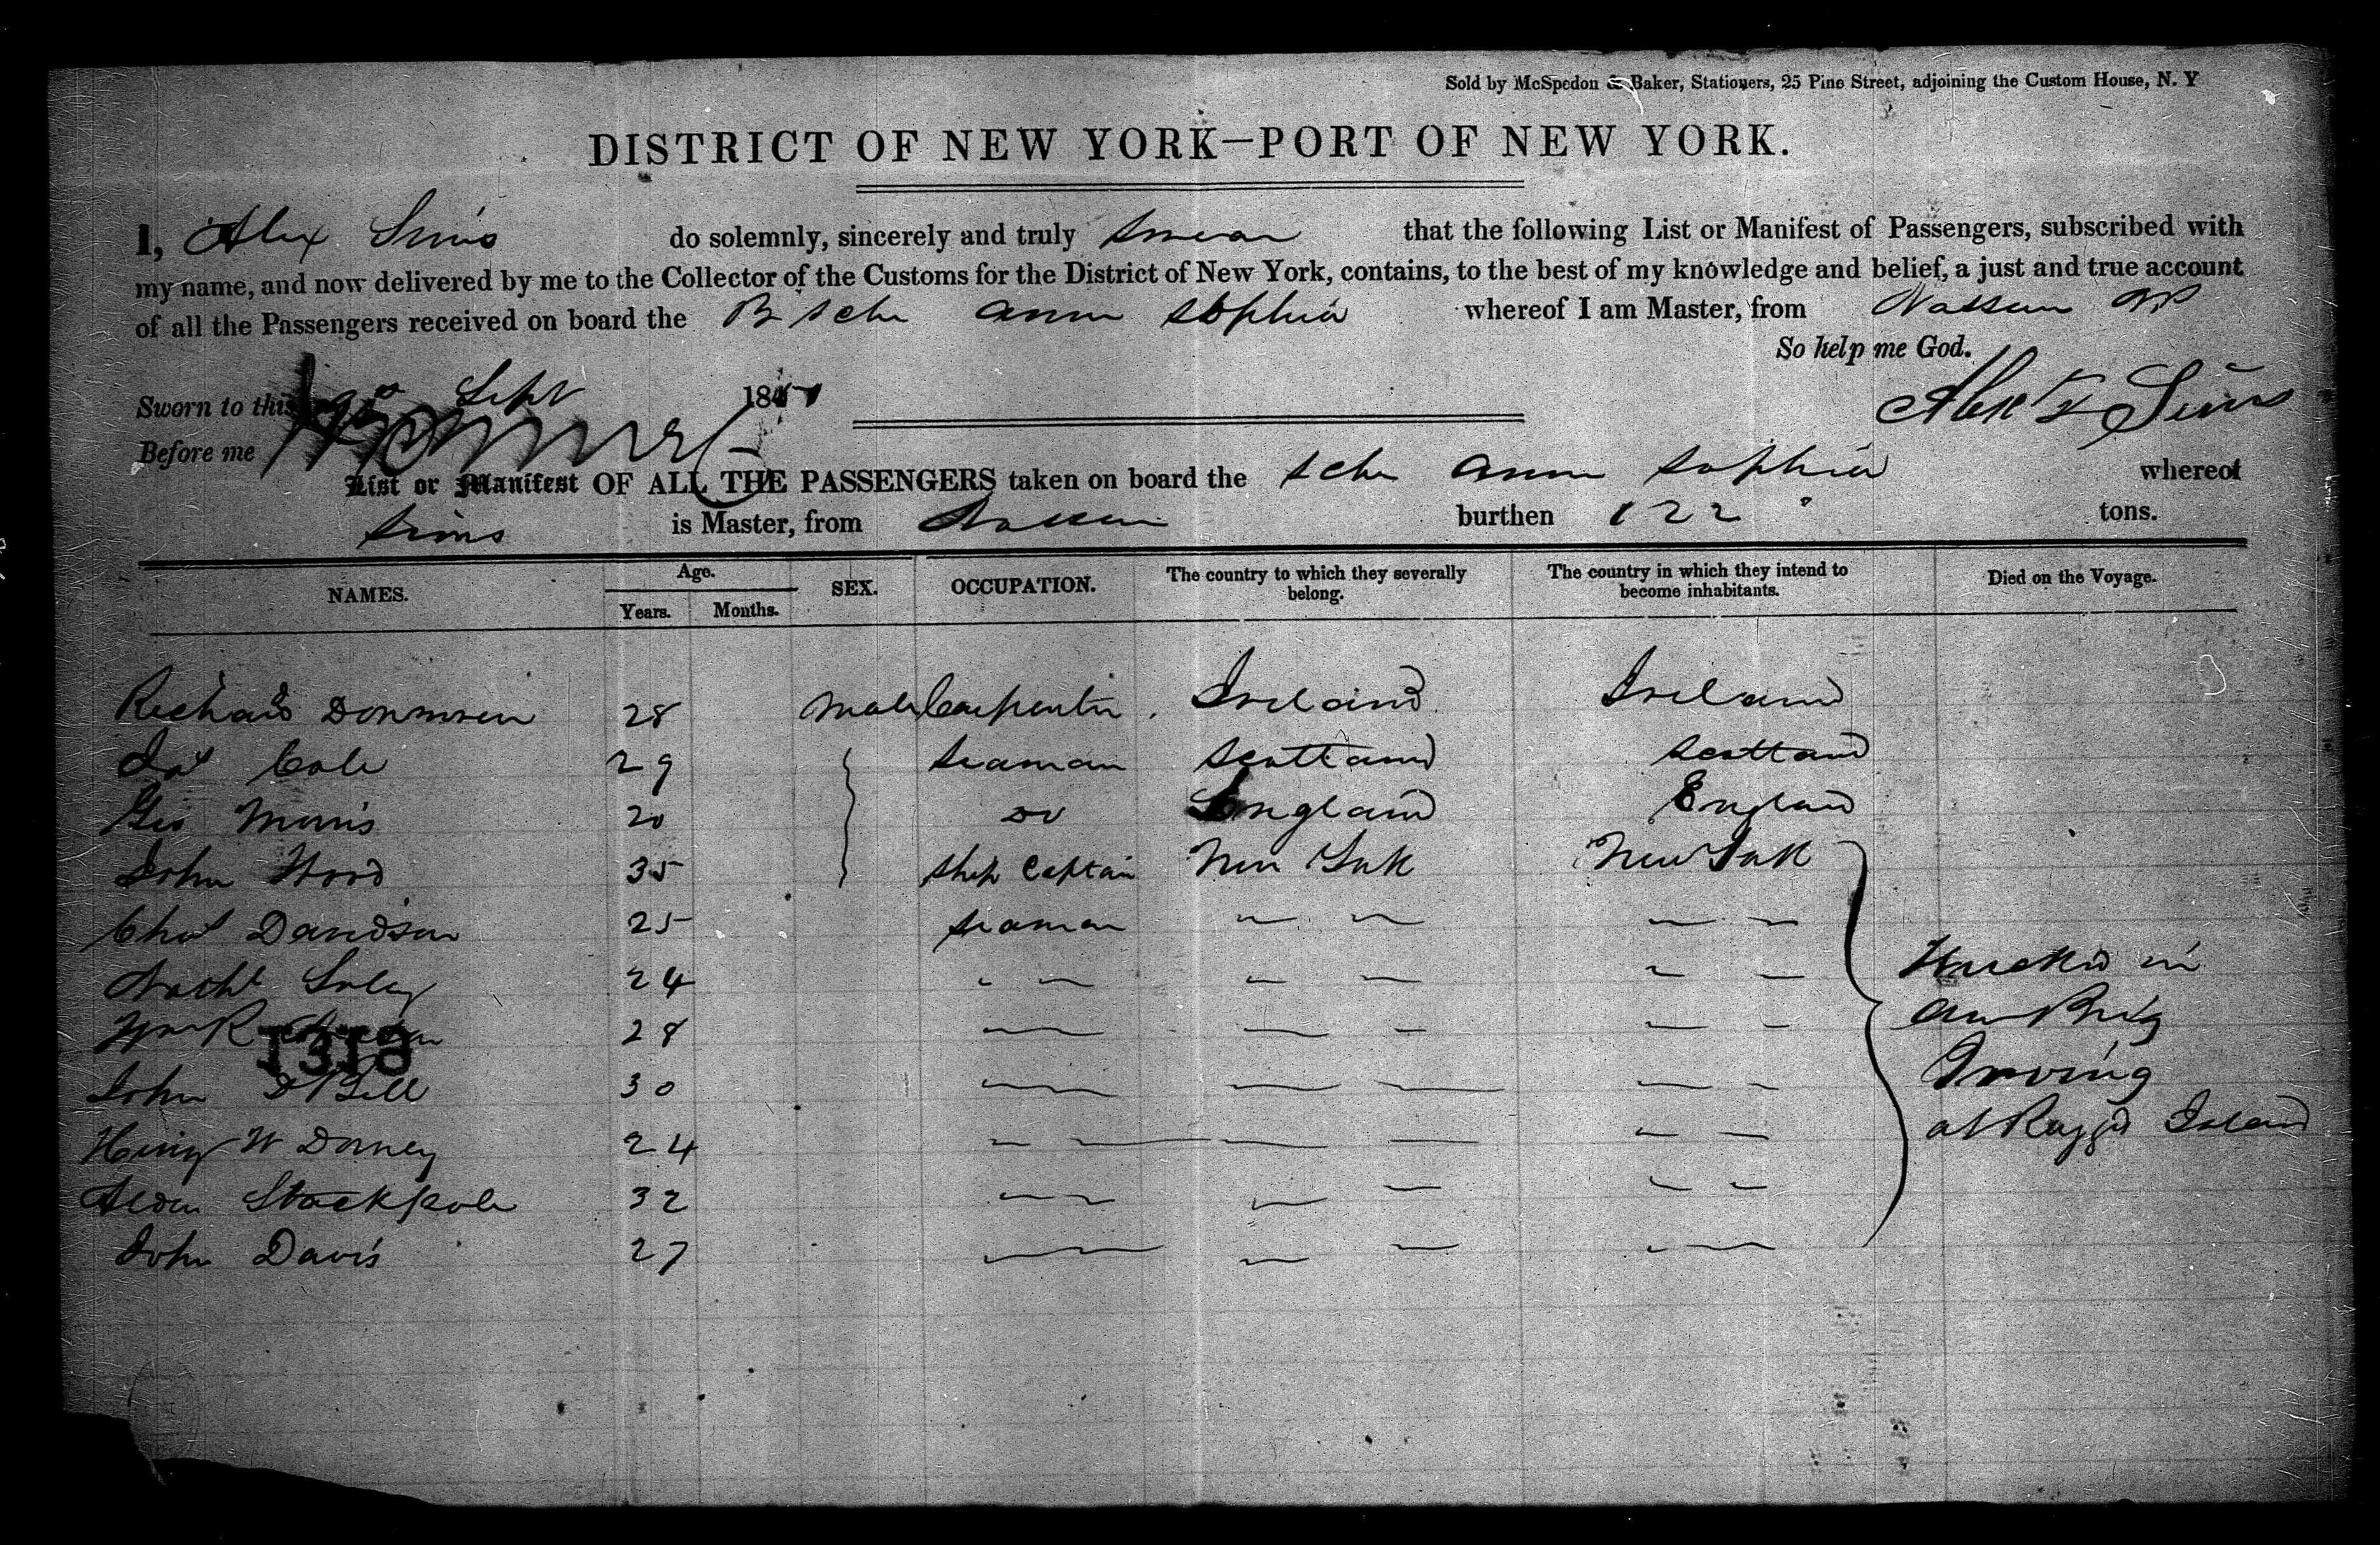 Sold by McSpedon & Baker, Stationers, 25 Pine Street, adjoining the Custom House, N. Y
DISTRICT OF NEW YORK—PORT OF NEW YORK.
I, Alex Sims do solemnly, sincerely and truly swear that the following List or Manifest of Passengers, subscribed with
my name, and now delivered by me to the Collector of the Customs for the District of New York, contains, to the best of my knowledge and belief, a just and true account
of all the Passengers received on board the B Schr Ann Sophia whereof I am Master, from Nassau NP
So help me God.
Sworn to this Sept 18
Alexr Sims
Before me
List or Manifest OF ALL THE PASSENGERS taken on board the Schr Ann Sophia whereof
Sims is Master, from Nassau burthen 122 tons.
NAMES. Age. Years. Months. SEX. OCCUPATION. The country to which they severally belong. The country in which they intend to become inhabitants. Died on the Voyage.
Richard 28 Male Carpenter Ireland Ireland
Jas Cole 29 Seaman Scotland Scotland
Geo Morris 20 Do England England
John Wood 35 Ship Captain New York New York
Chas Davidson 25 Seaman — — — —
Nathl 24 — — — — — —
Wm R 28 — — — — —
1318
John D Bell 30 — — — — —
Henry W Dorney 24 — — — — — —
Alden Stackpole 32 — — — — — —
John Davis 27 — — — — —
Wreckd in
Am Brig
Irving
at Raggd Island